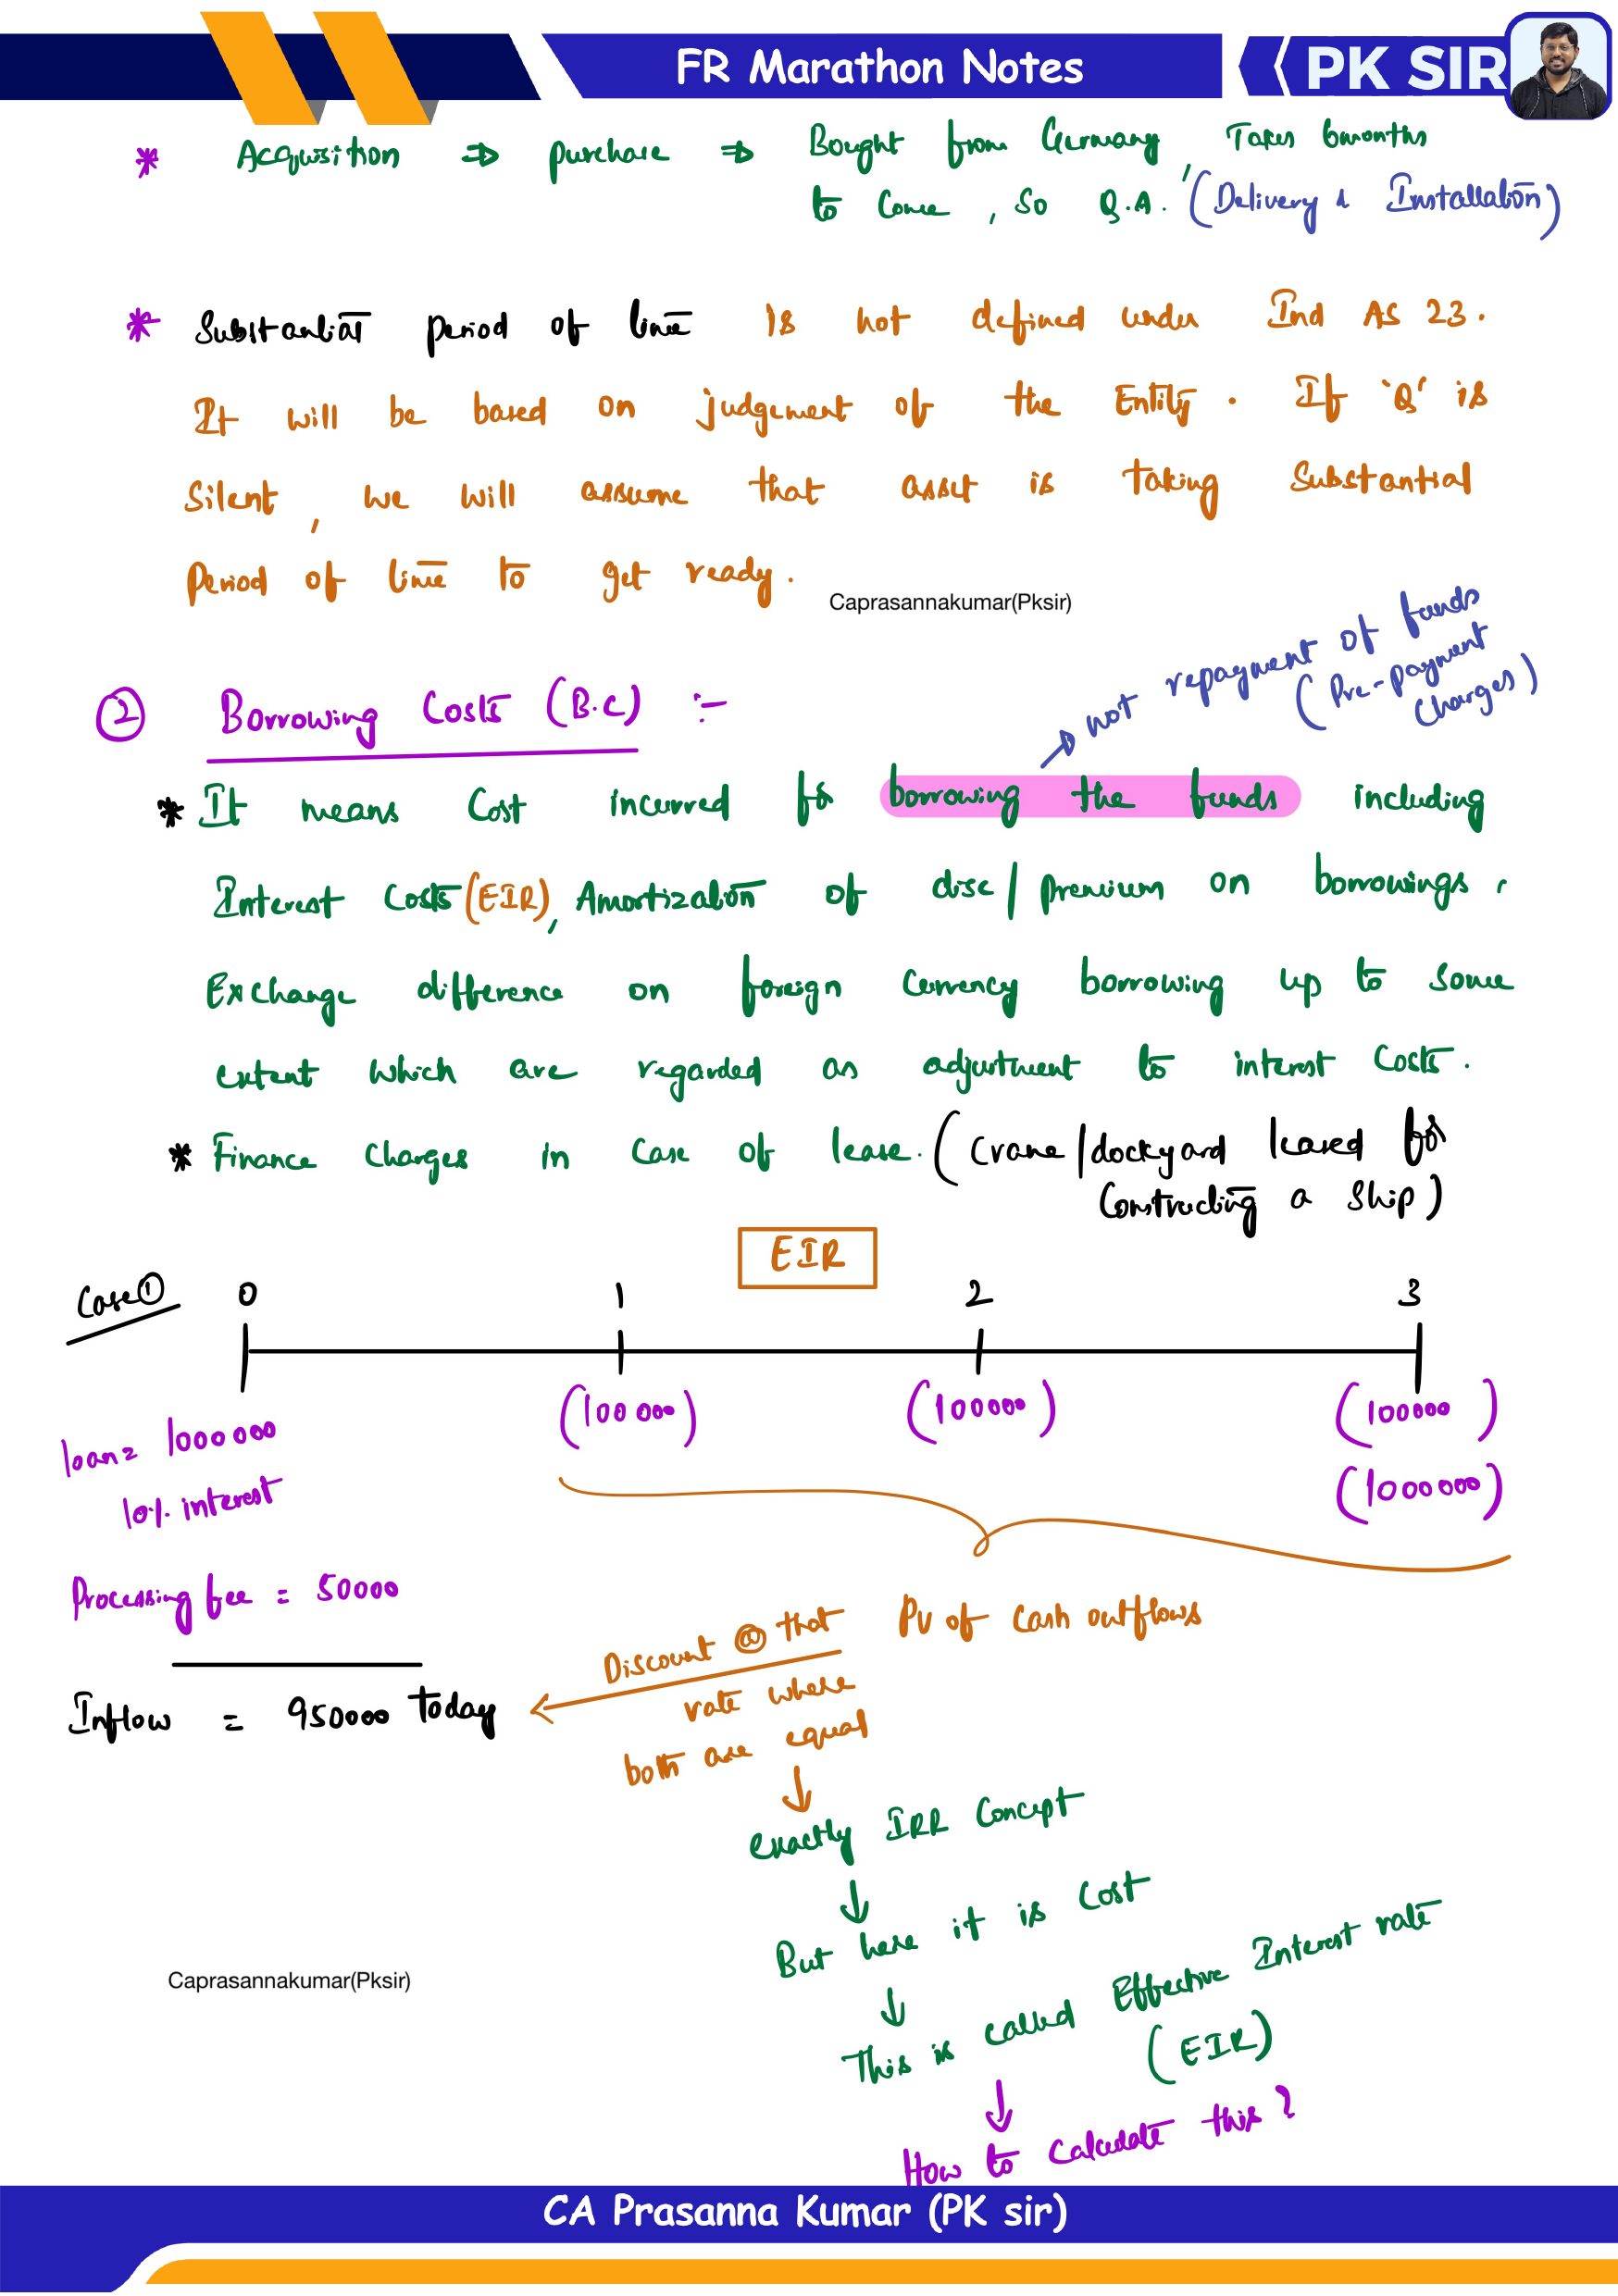 FR Marathon Notes
PK SIR
* Acquisition ⇒ purchase ⇒ Bought from Germany, Takes 6months
to come, so Q.A. (Delivery & Installation)
* Substantial period of time is not defined under Ind AS 23.
It will be based on judgement of the Entity. If 'Q' is
silent, we will assume that asset is taking substantial
period of time to get ready.
Caprasannakumar(Pksir)
② Borrowing Costs (B.C) :-
→ not repayment of funds
(Pre-payment
charges)
* It means cost incurred for borrowing the funds including
Interest costs (EIR), Amortization of disc/premium on borrowings,
Exchange difference on foreign currency borrowing up to some
extent which are regarded as adjustment to interest costs.
* Finance charges in case of lease. (crane/dockyard leased for
constructing a ship)
EIR
Case ①
0 1 2 3
(100000) (100000) (100000)
loan = 1000000
(1000000)
10% interest
Processing fee = 50000
PV of cash outflows
Discount @ that
rate where
both are equal
Inflow = 950000 today
↓
exactly IRR concept
↓
But here it is cost
↓
This is called Effective Interest rate
(EIR)
↓
How to calculate this?
Caprasannakumar(Pksir)
CA Prasanna Kumar (PK sir)